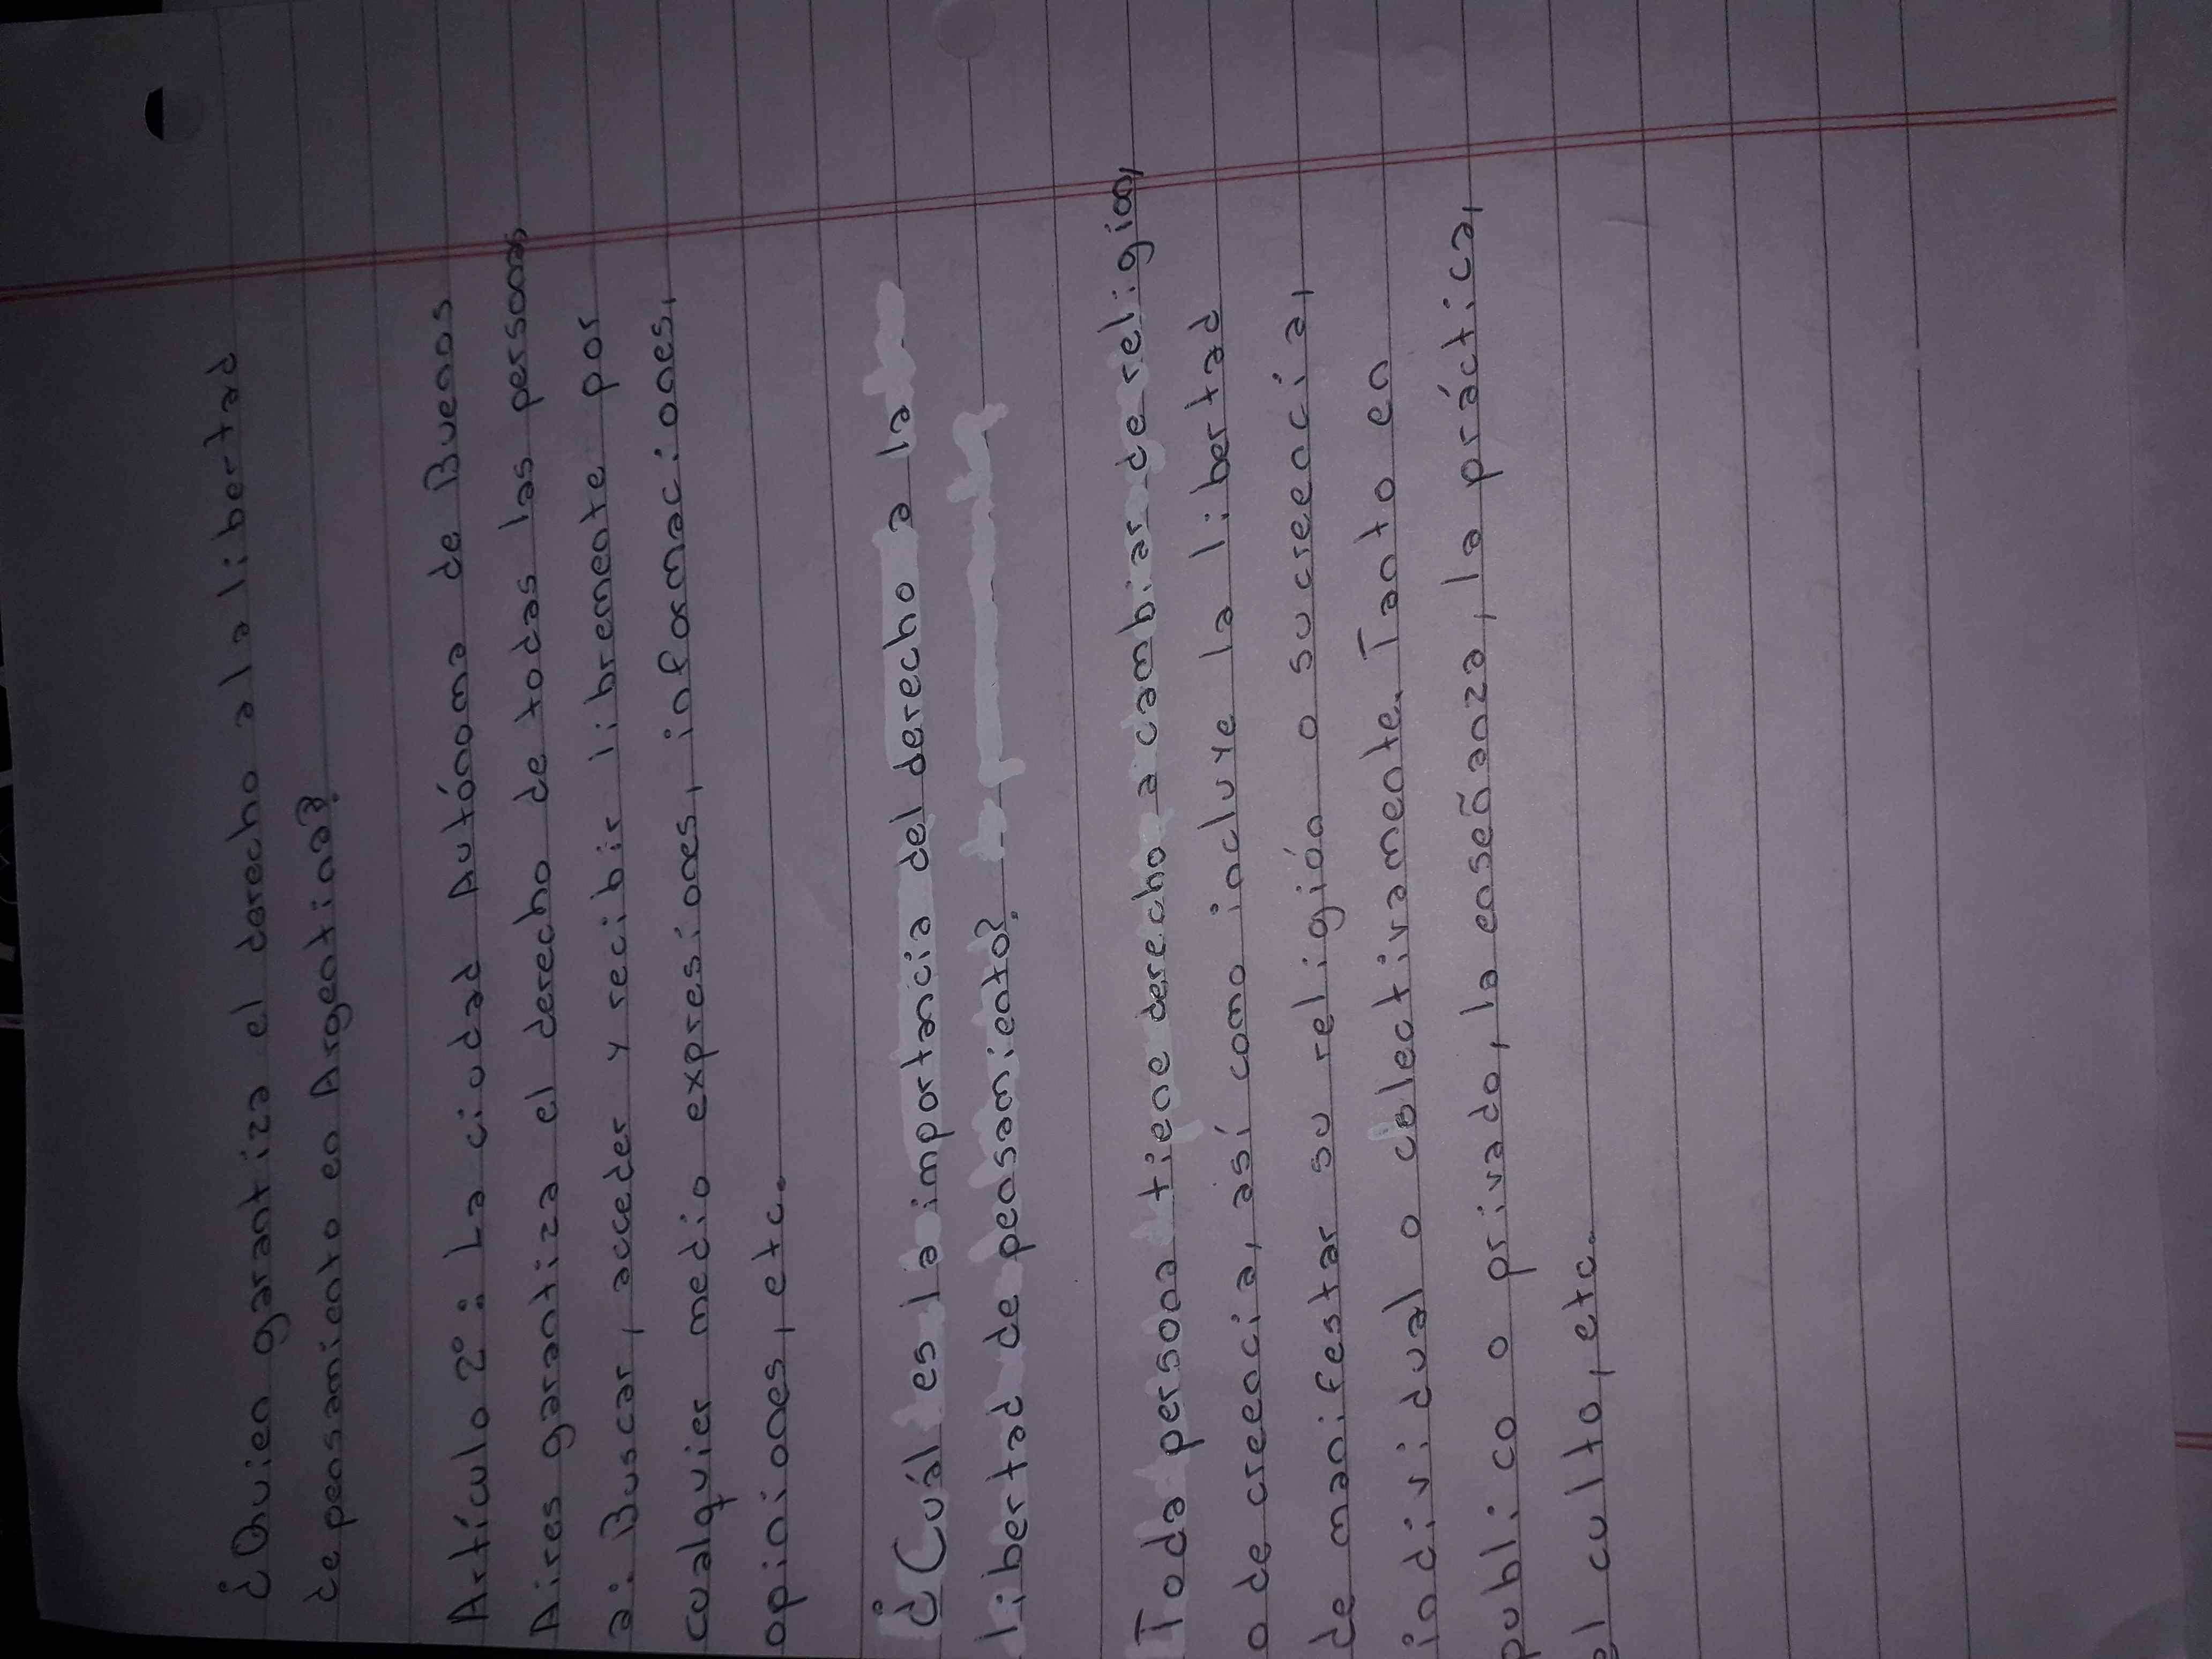 ¿Quien garantiza el derecho a la libertad
de pensamiento en Argentina?
Artículo 2°: La ciudad Autónoma de Buenos
Aires garantiza el derecho de todas las personas
a: Buscar, acceder y recibir libremente por
cualquier medio expresiones, informaciones,
opiniones, etc.
¿Cuál es la importancia del derecho a la
libertad de pensamiento?
Toda persona tiene derecho a cambiar de religion,
o de creencia, así como incluye la libertad
de manifestar su religión o su creencia,
individual o colectivamente. Tanto en
publico o privado, la enseñanza, la práctica,
el culto, etc.